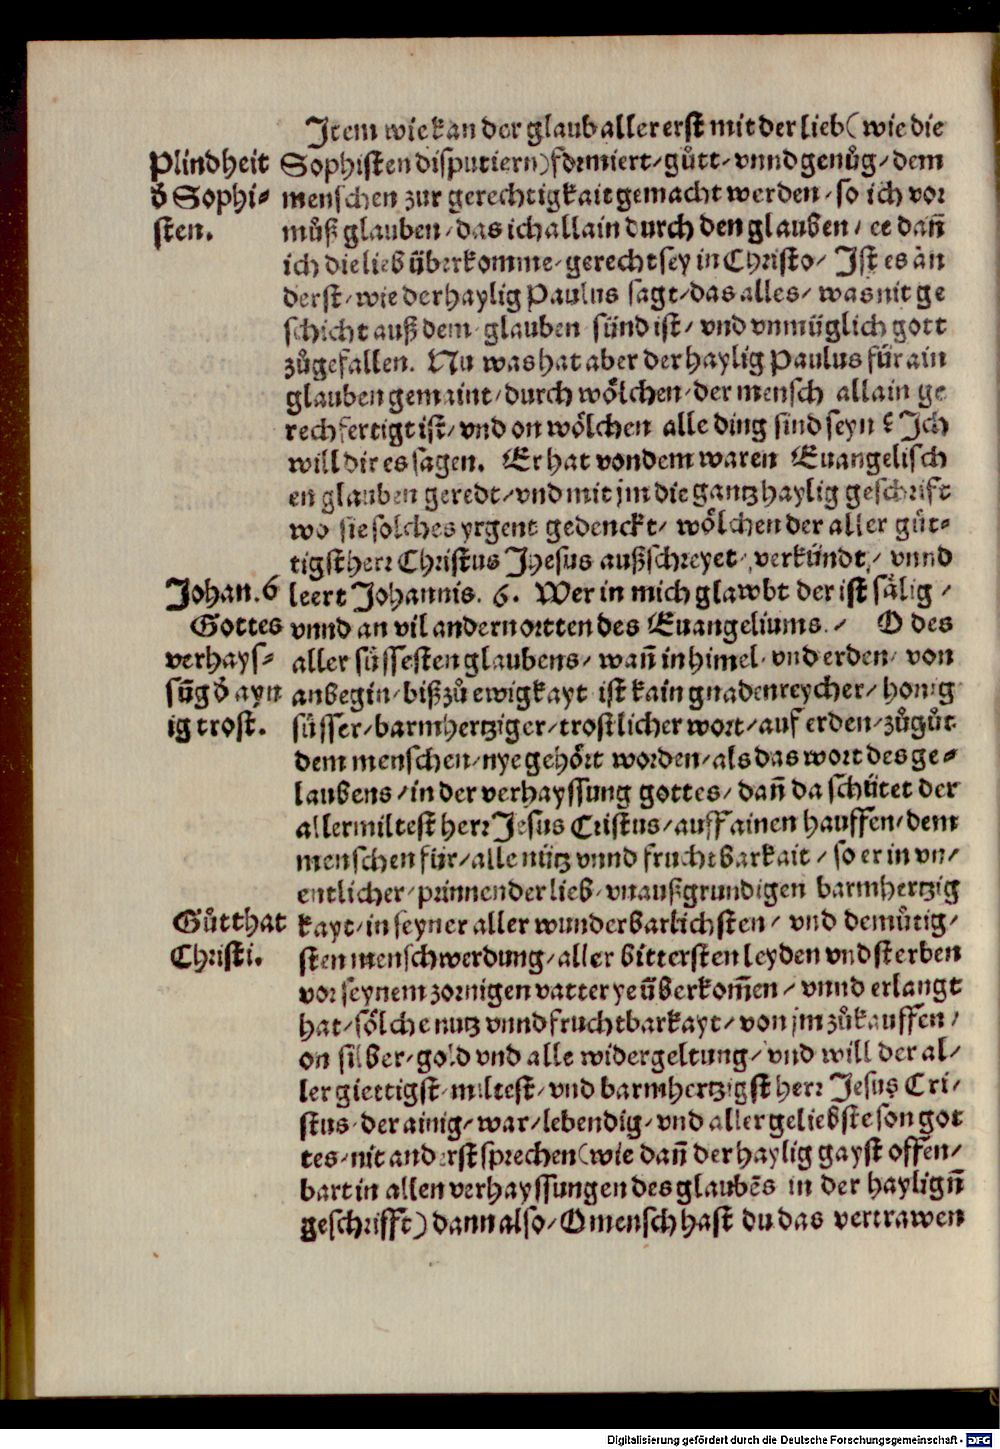 Item wie kan der glaub aller erst mit der lieb (wie die
Plindheit
d̕ Sophi-
sten.
Sophisten disputiern) formiert / gůtt / vnnd genůg / dem
menschen zur gerechtigkait gemacht werden / so ich vor
můß glauben / das ich allain durch den glauben / ee dañ
ich die lieb überkomme / gerecht sey in Christo / Ist es än
derst / wie der haylig Paulus sagt / das alles / was nit ge
schicht auß dem glauben sünd ist / vnd vnmüglich gott
zůgefallen. Nu was hat aber der haylig Paulus für ain
glauben gemaint / durch wölchen / der mensch allain ge
rechfertigt ist / vnd on wölchen alle ding sind seyn ? Ich
will dir es sagen. Er hat von dem waren Euangelisch
en glauben geredt / vnd mit jm die gantz haylig geschrift
wo sie solches yrgent gedenckt / wölchen der aller güt-
tigst herr Christus Jhesus außschreyet / verkündt / vnnd
Johan. 6
leert Johannis. 6. Wer in mich glawbt der ist sälig /
Gottes
verhays-
sũg d̕ ayn
ig trost.
vnnd an vil andern ortten des Euangeliums. / O des
aller süssesten glaubens / wañ in himel / vnd erden / von
anbegin / biß zů ewigkayt ist kain gnadenreycher / honig
süsser / barmhertziger / trostlicher wort / auf erden / zůgůt
dem menschen / nye gehört worden / als das wort des ge-
laubens / in der verhayssung gottes / dañ da schütet der
allermiltest herr Jesus Cristus / auff ainen hauffen / dem
menschen für / alle nütz vnnd fruchtbarkait / so er in vn /
entlicher / prinnender lieb / vnaußgrundigen barmhertzig
Gůtthat
Christi.
kayt / in seyner aller wunderbarlichsten / vnd demůtig /
sten menschwerdung / aller bittersten leyden vnd sterben
vor seynem zornigen vatter ye überkom̃en / vnnd erlangt
hat / sölche nutz vnnd fruchtbarkayt / von jm zůkauffen /
on silber / gold vnd alle widergeltung / vnd will der al /
ler giettigst / miltest / vnd barmhertzigst herr Jesus Cri /
stus / der ainig / war / lebendig / vnd aller geliebste son got
tes / nit anderst sprechen (wie dañ der haylig gayst offen /
bart in allen verhayssungen des glaubẽs in der hayligñ
geschrifft) dann also / O mensch hast du das vertrawen
Digitalisierung gefördert durch die Deutsche Forschungsgemeinschaft - DFG